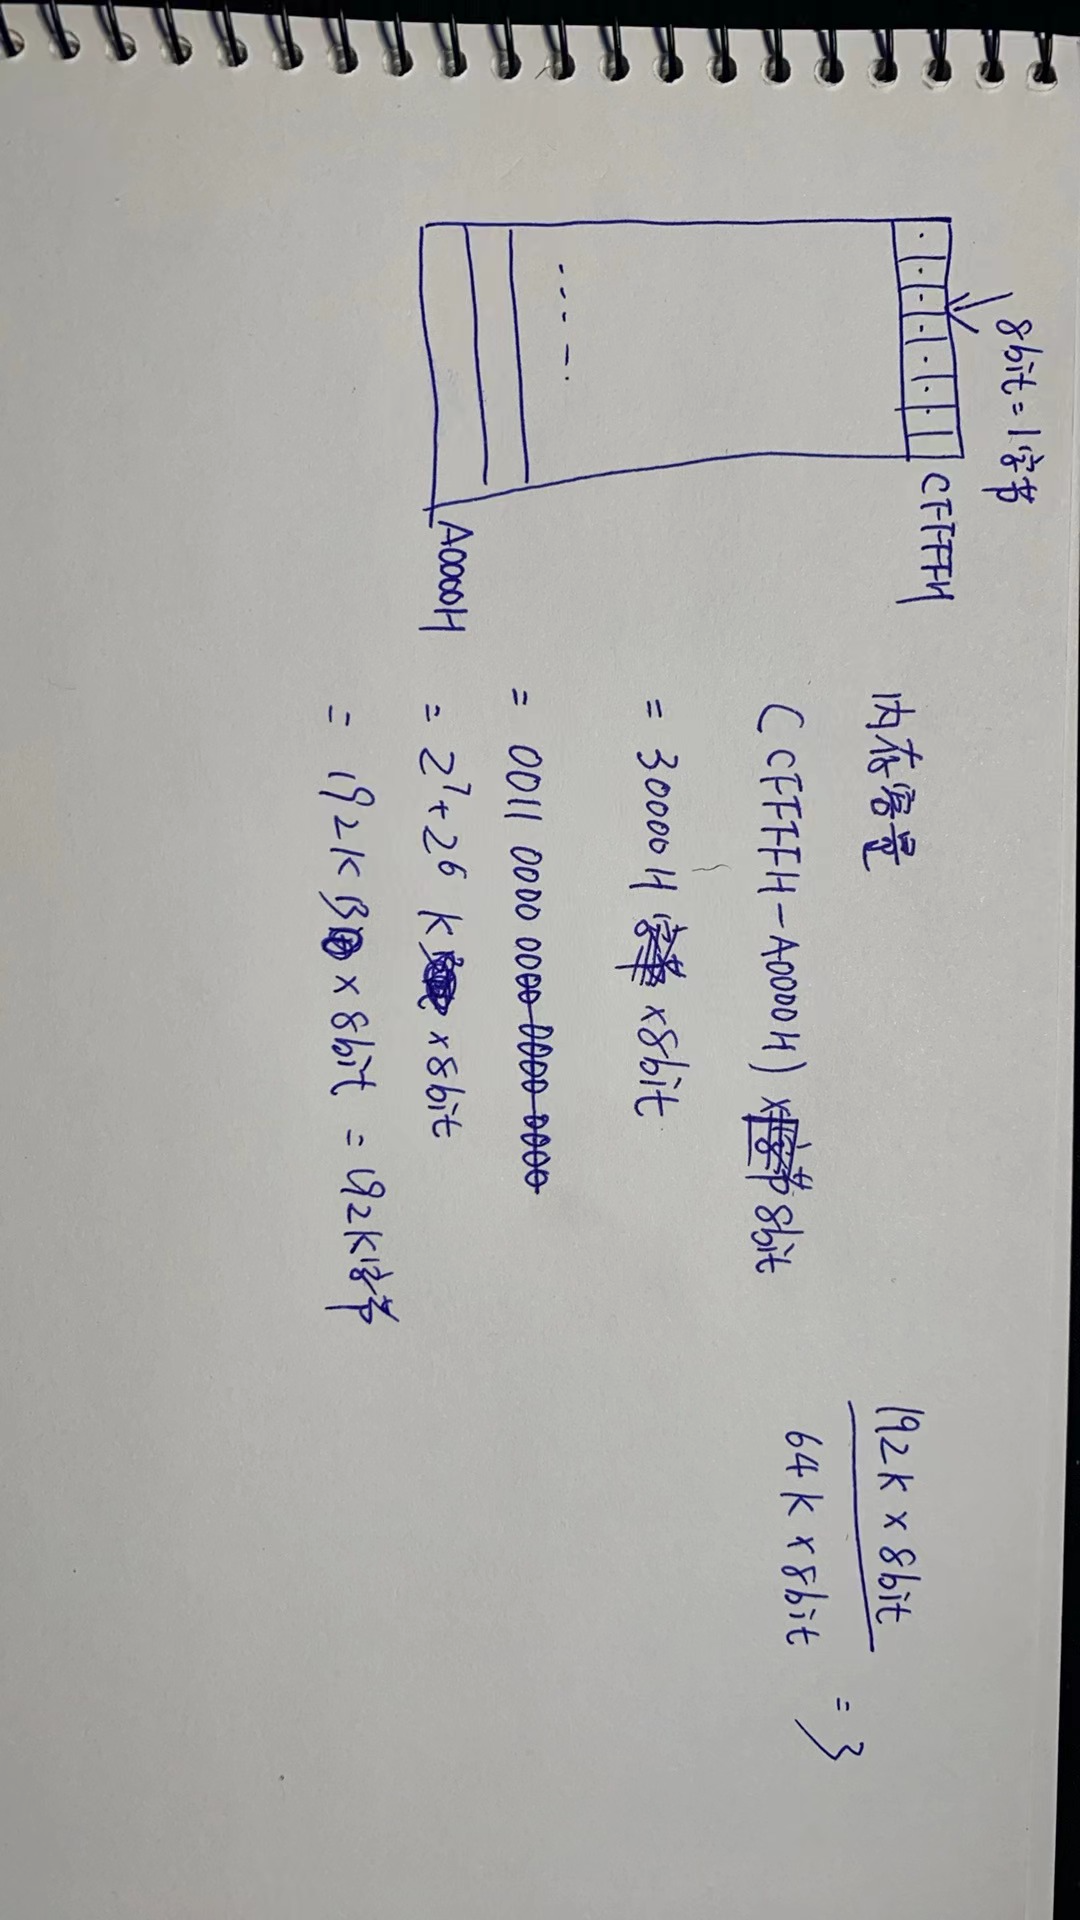 8bit = 1字节
CFFFFH
A0000H
内存容量
(CFFFFH-A0000H) × 8bit
= 30000H × 8bit
= 0011 0000 0000 0000 0000
= 2⁷+2⁶ K × 8bit
= 192KB × 8bit = 192K字节
192K × 8bit
64K × 8bit
= 3